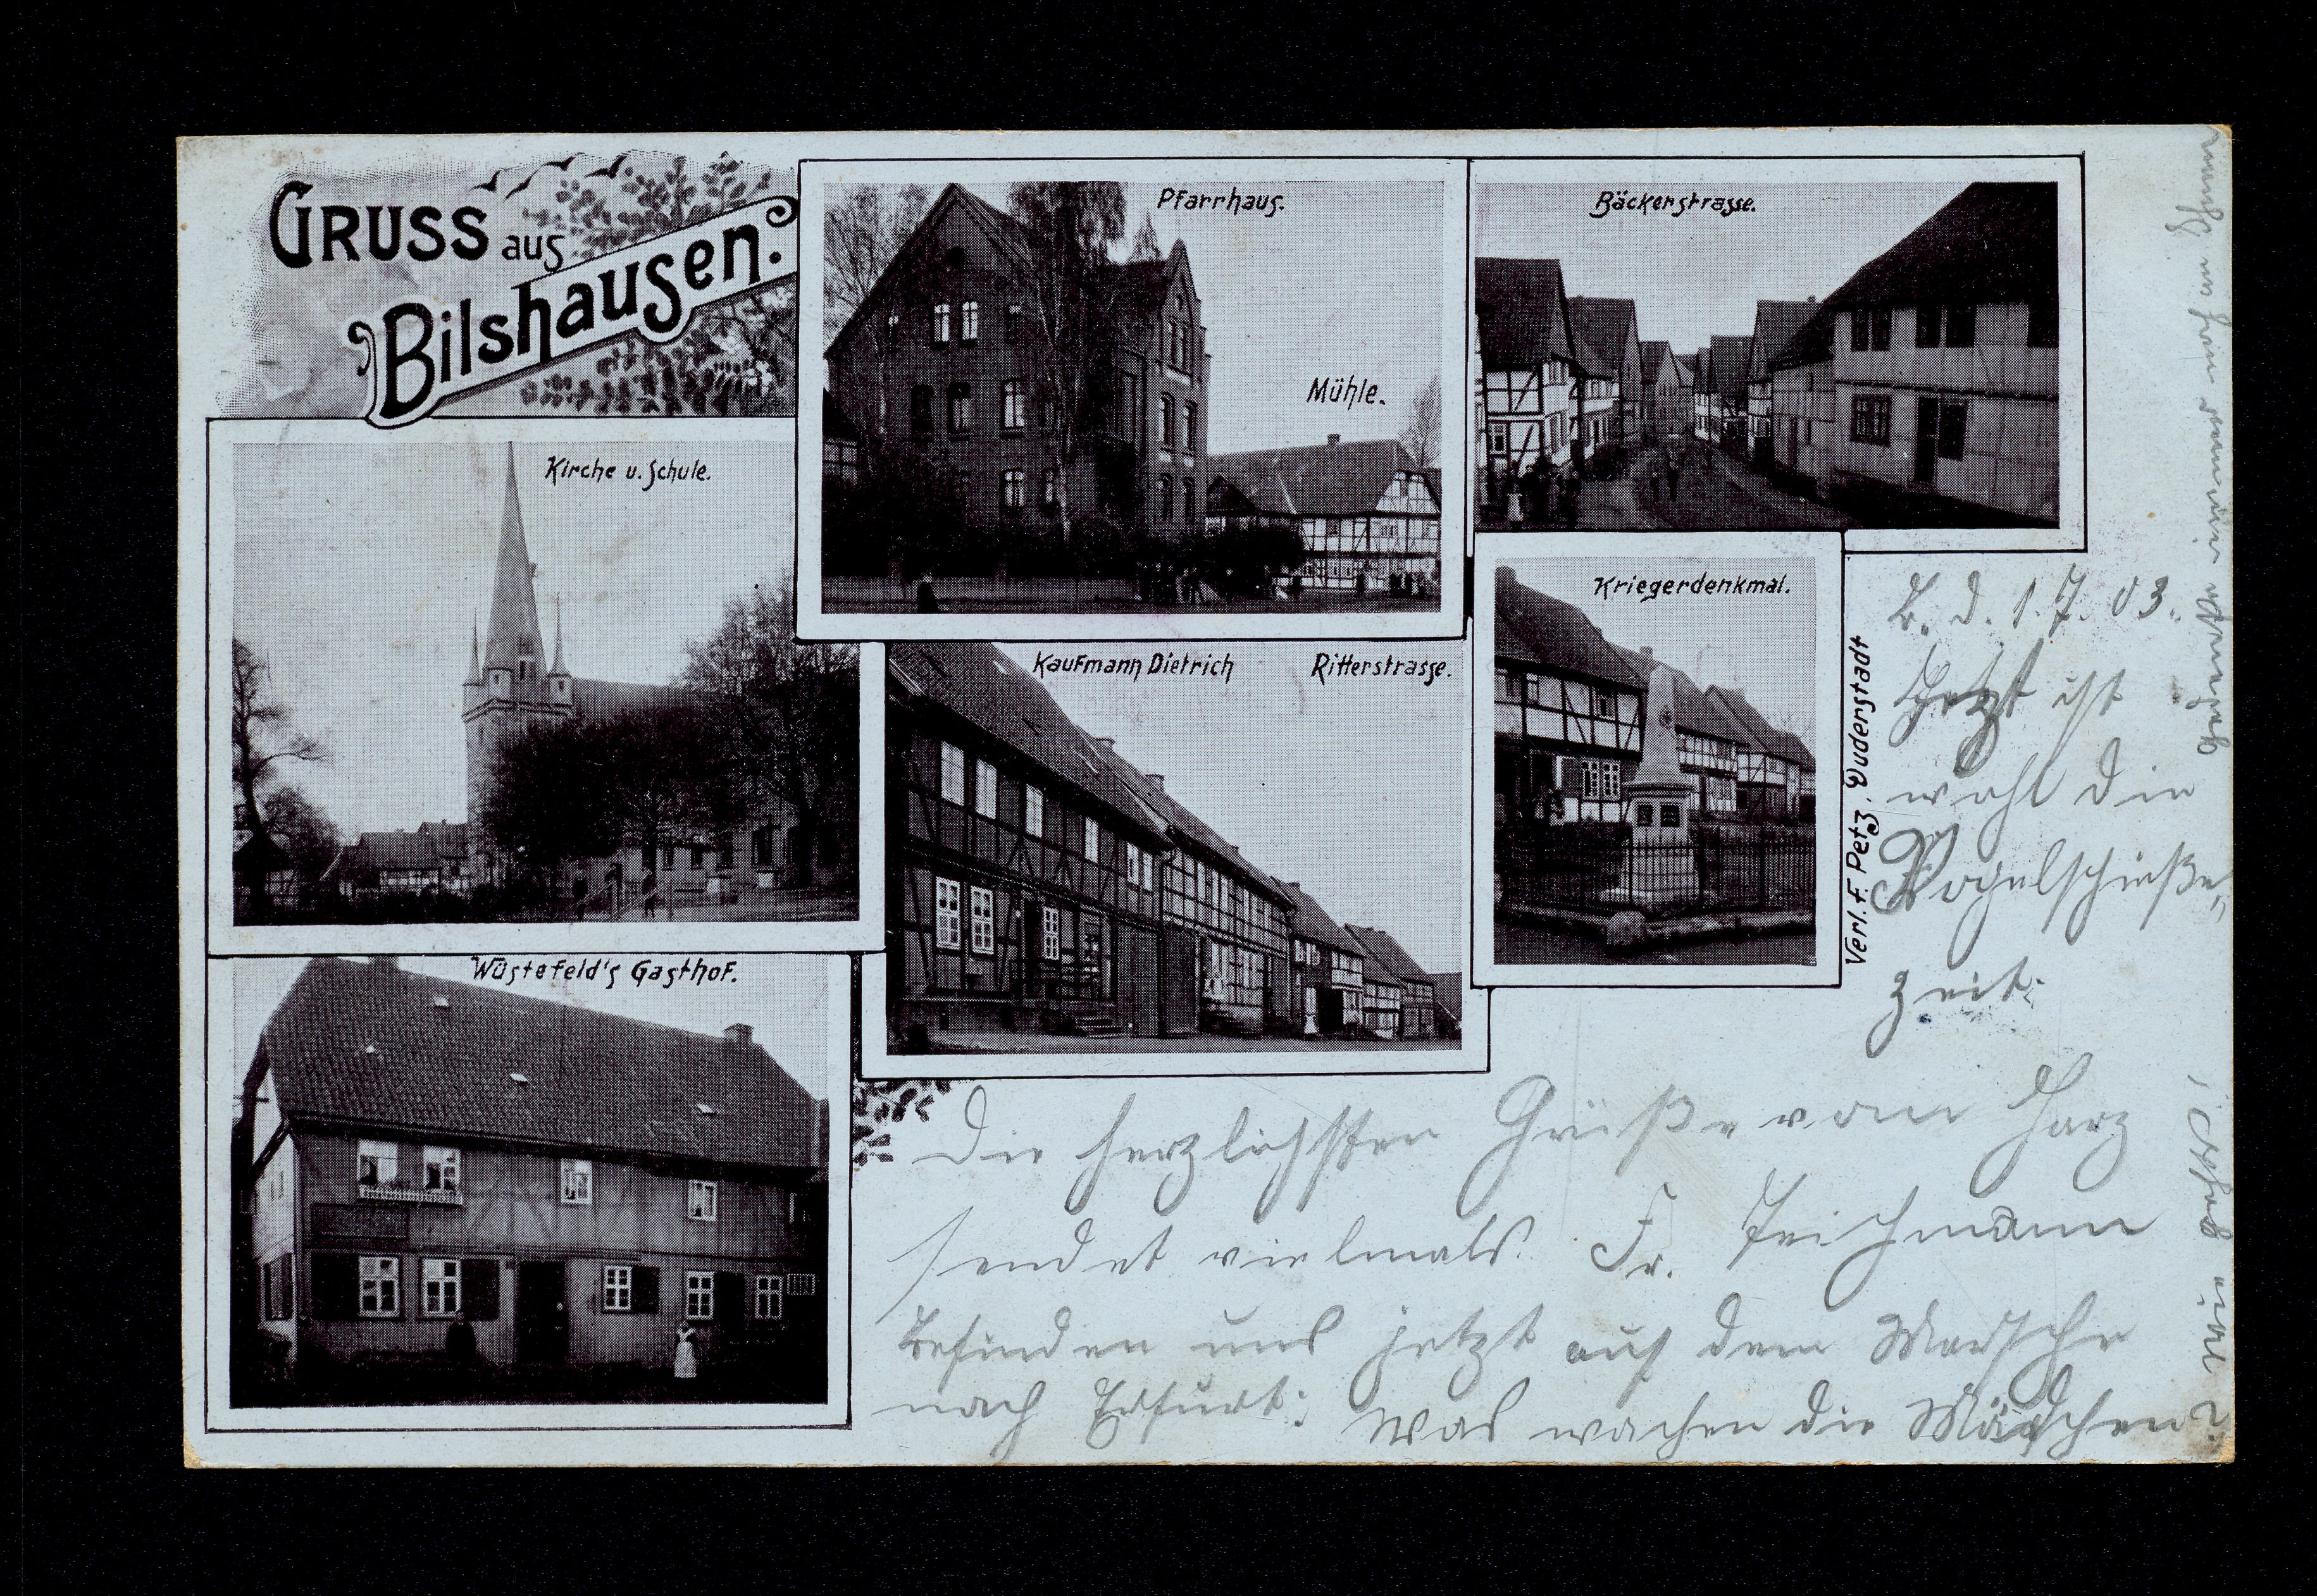 GRUSS aus
Bilshausen.
Pfarrhaus.
Mühle.
Bäckerstrasse.
Kirche u. Schule.
Kaufmann Dietrich
Ritterstrasse.
Kriegerdenkmal.
Wüstefeld's Gasthof.
Verl. F. Petz. Duderstadt
B. d. 1.7.03.
Jetzt ist
wohl die
Vogelschieße„
zeit.
Die herzlichsten Grüße vom Harz
sendet vielmals Fr. Teichmann
Befinden uns jetzt auf dem Marsche
nach Erfurt. Was machen die Mädchen?